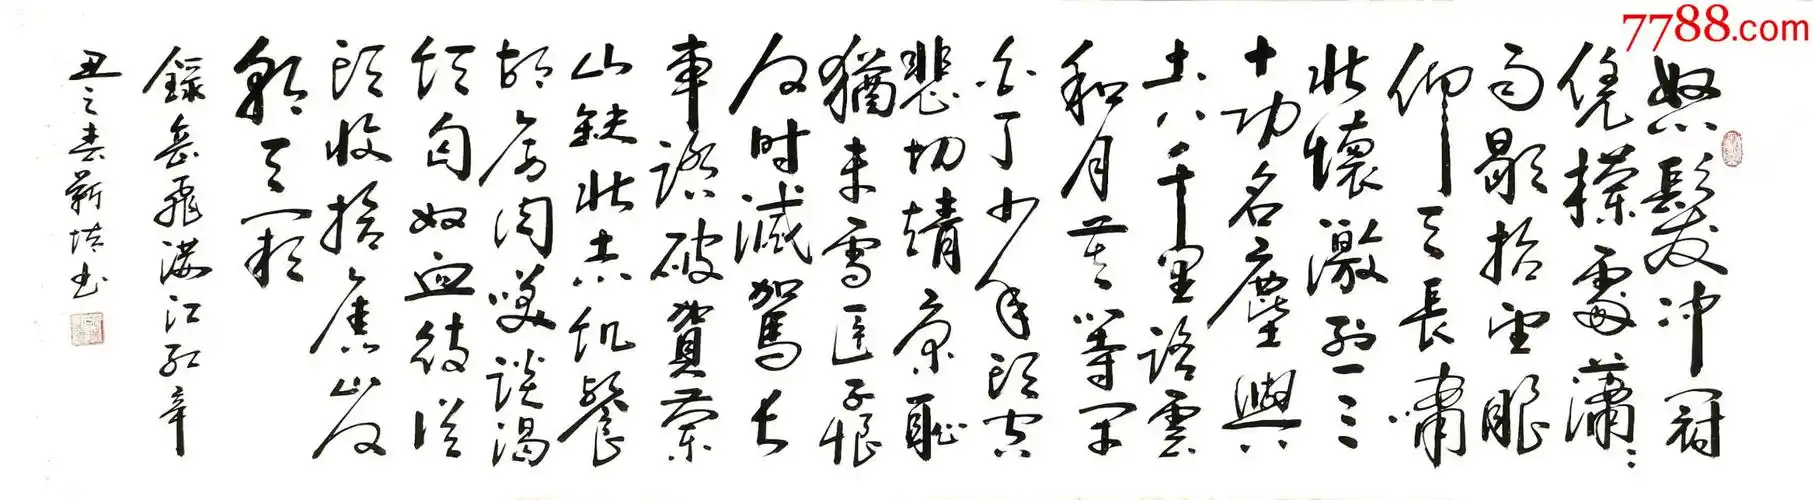 怒髮冲冠
凭欄處瀟〻
雨歇抬望眼
仰天長嘯
壮懷激烈三
十功名塵與
土八千里路雲
和月莫等闲
白了少年頭空
悲切靖康耻
猶未雪臣子恨
何时滅駕長
車踏破賀蘭
山缺壮志飢餐
胡虏肉笑談渴
饮匈奴血待從
頭收拾舊山河
朝天阙
錄岳飛满江红辛
丑之春靳书
7788.com